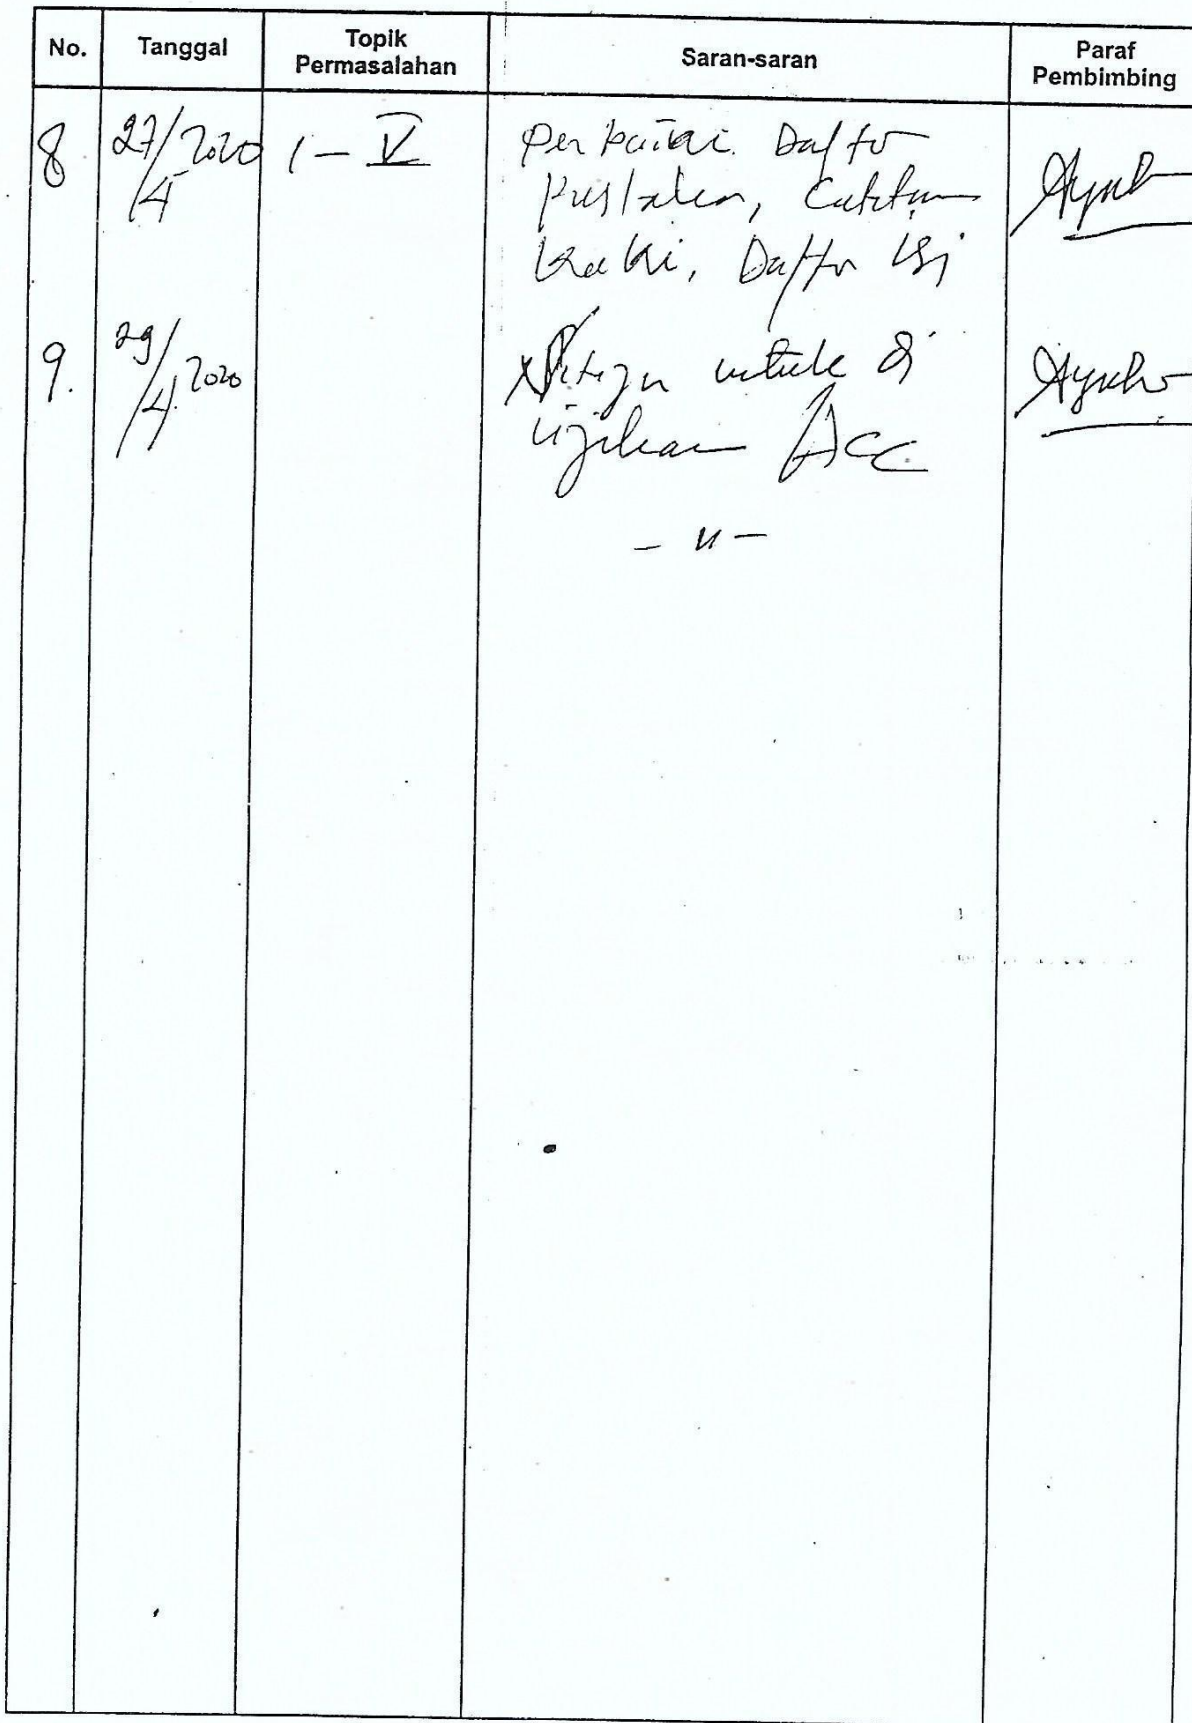 No. Tanggal Topik Permasalahan Saran-saran Paraf Pembimbing
8 27/4 2020 I - V Perbaiki Daftar
Pustaka, Catatan
Kaki, Daftar Isi
9. 29/4 2020 untuk di
ujikan Acc